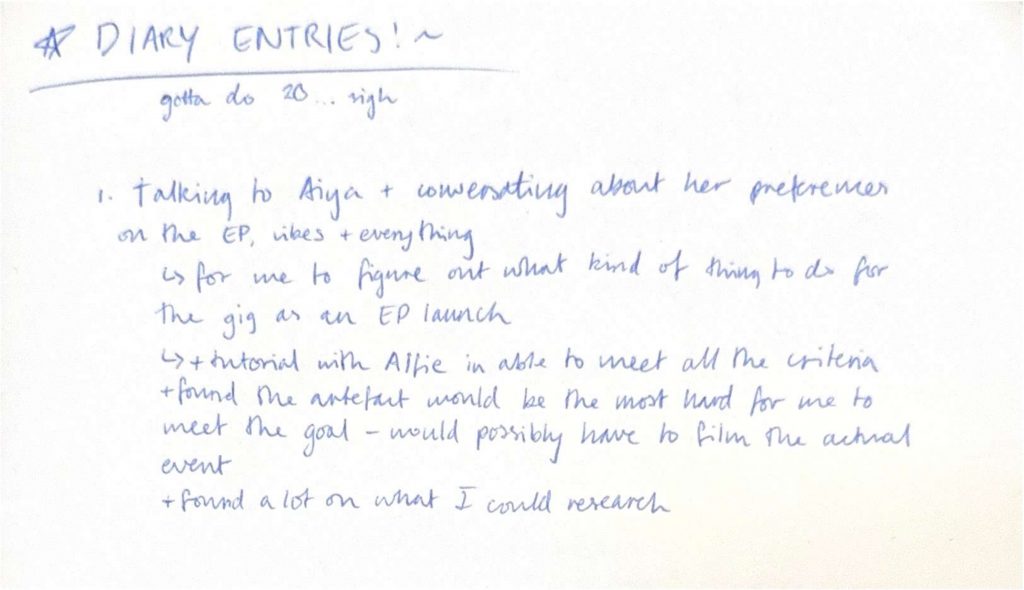 ☆ DIARY ENTRIES! ~
gotta do 20... sigh
1. Talking to Aiya + conversating about her preferences
on the EP, vibes + everything
↳ for me to figure out what kind of thing to do for
the gig as an EP launch
↳ + tutorial with Alfie in able to meet all the criteria
+ found the artefact would be the most hard for me to
meet the goal - would possibly have to film the actual
event
+ found a lot on what I could research